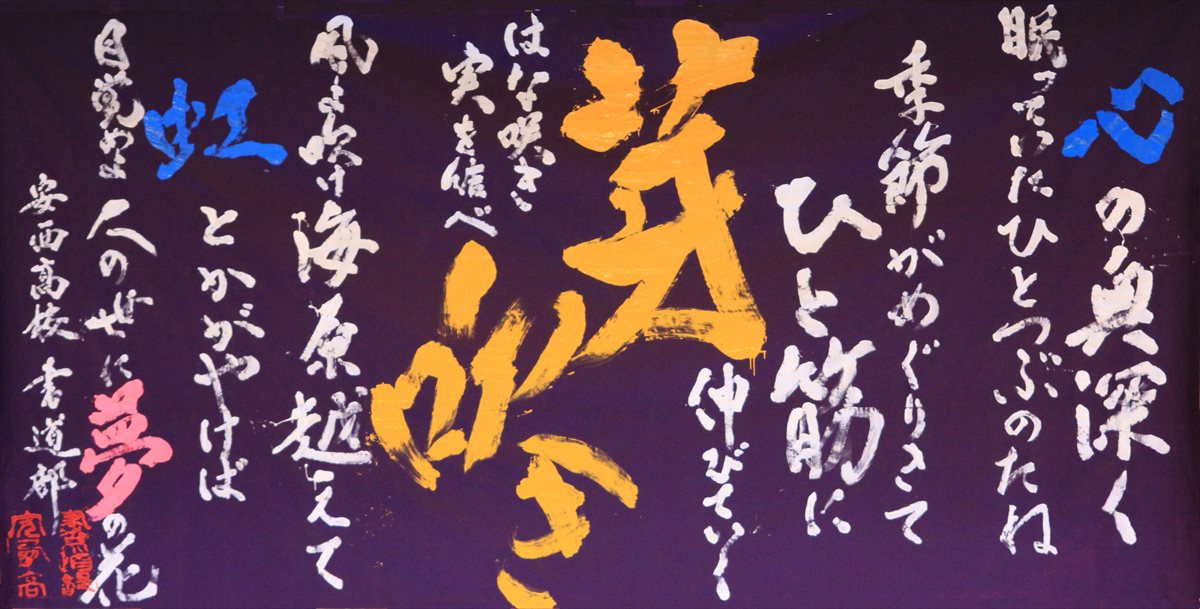 心の奥深く
眠っていたひとつぶのたね
季節がめぐりきて
ひと筋に
伸びていく
芽吹き
はな咲き
実を信べ
風よ吹け海原越えて
虹とかがやけば
目覚めよ人の世に夢の花
安西高校書道部